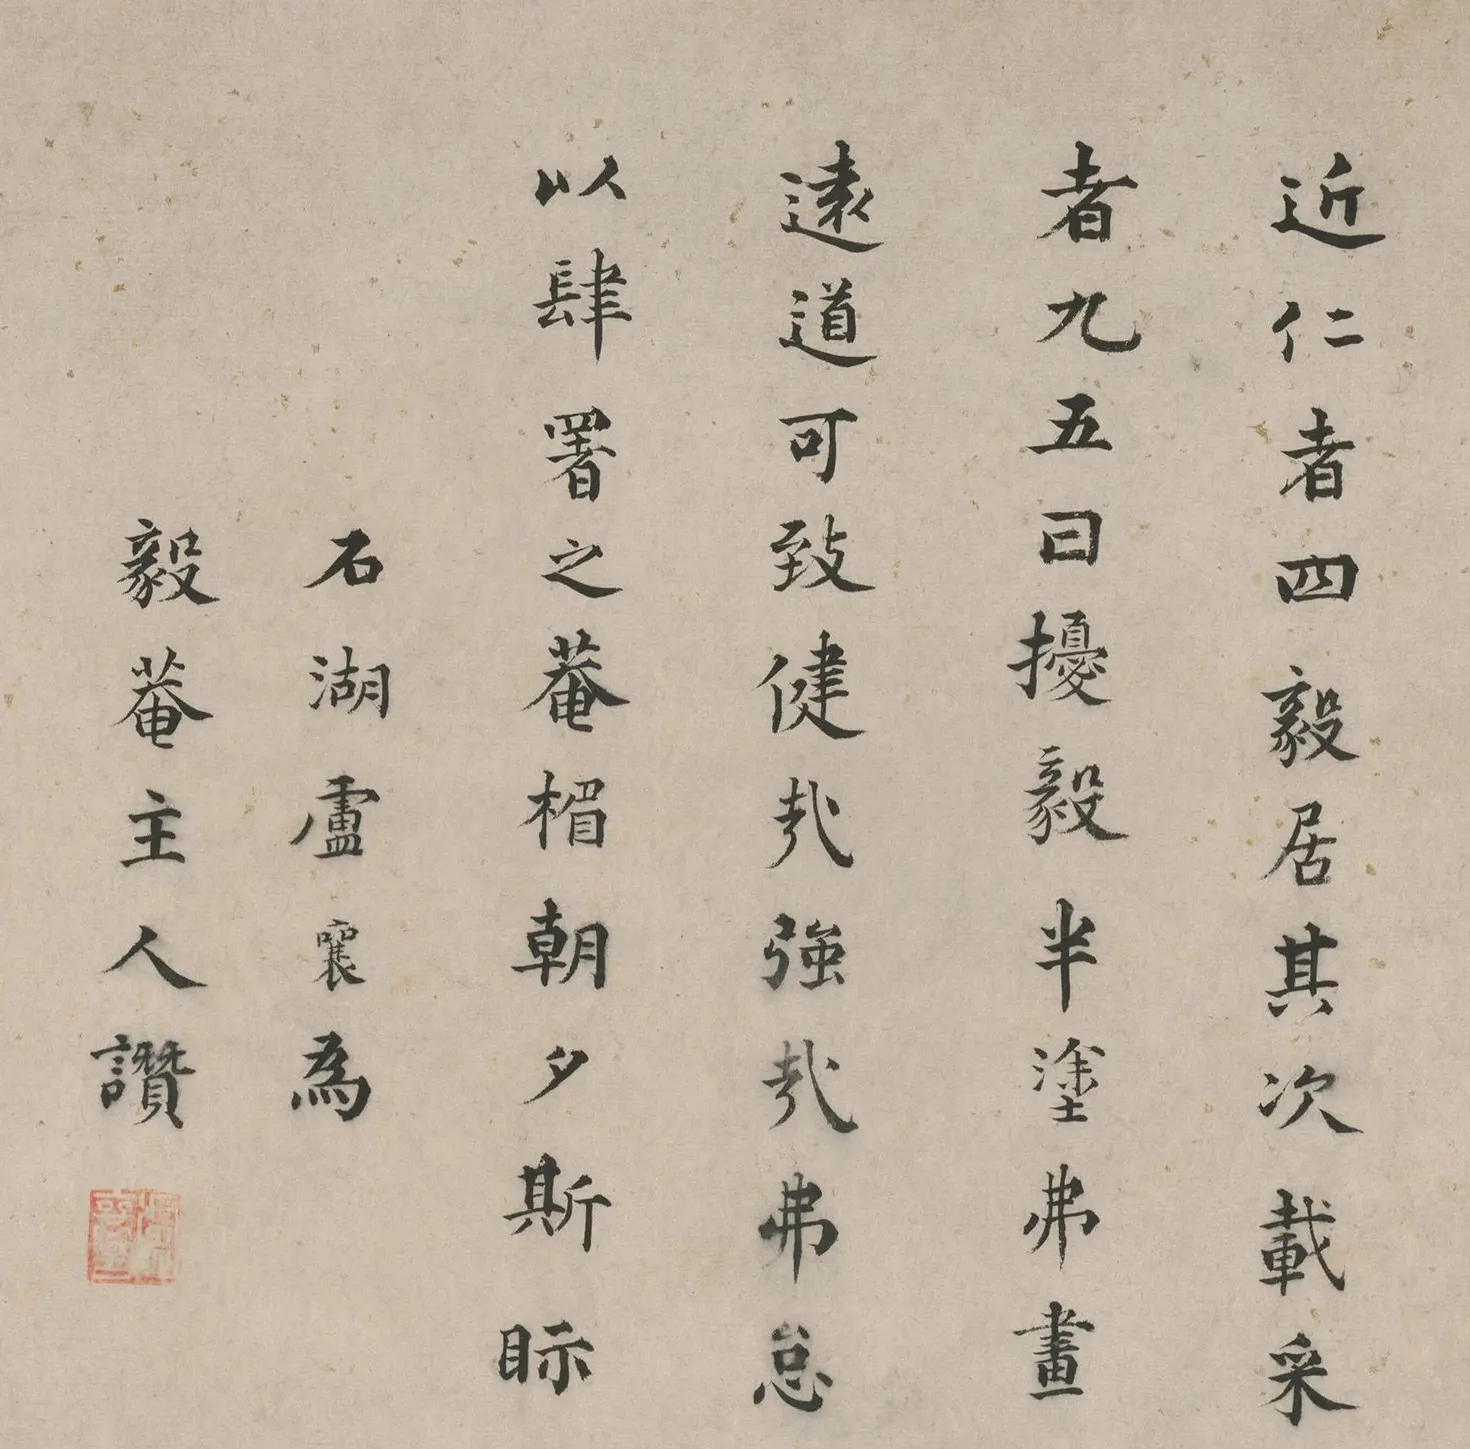 近仁者四毅居其次載采
者九五曰擾毅半塗弗畫
遠道可致健哉強哉弗怠
以肆署之菴楣朝夕斯眎
石湖盧襄為
毅菴主人讚